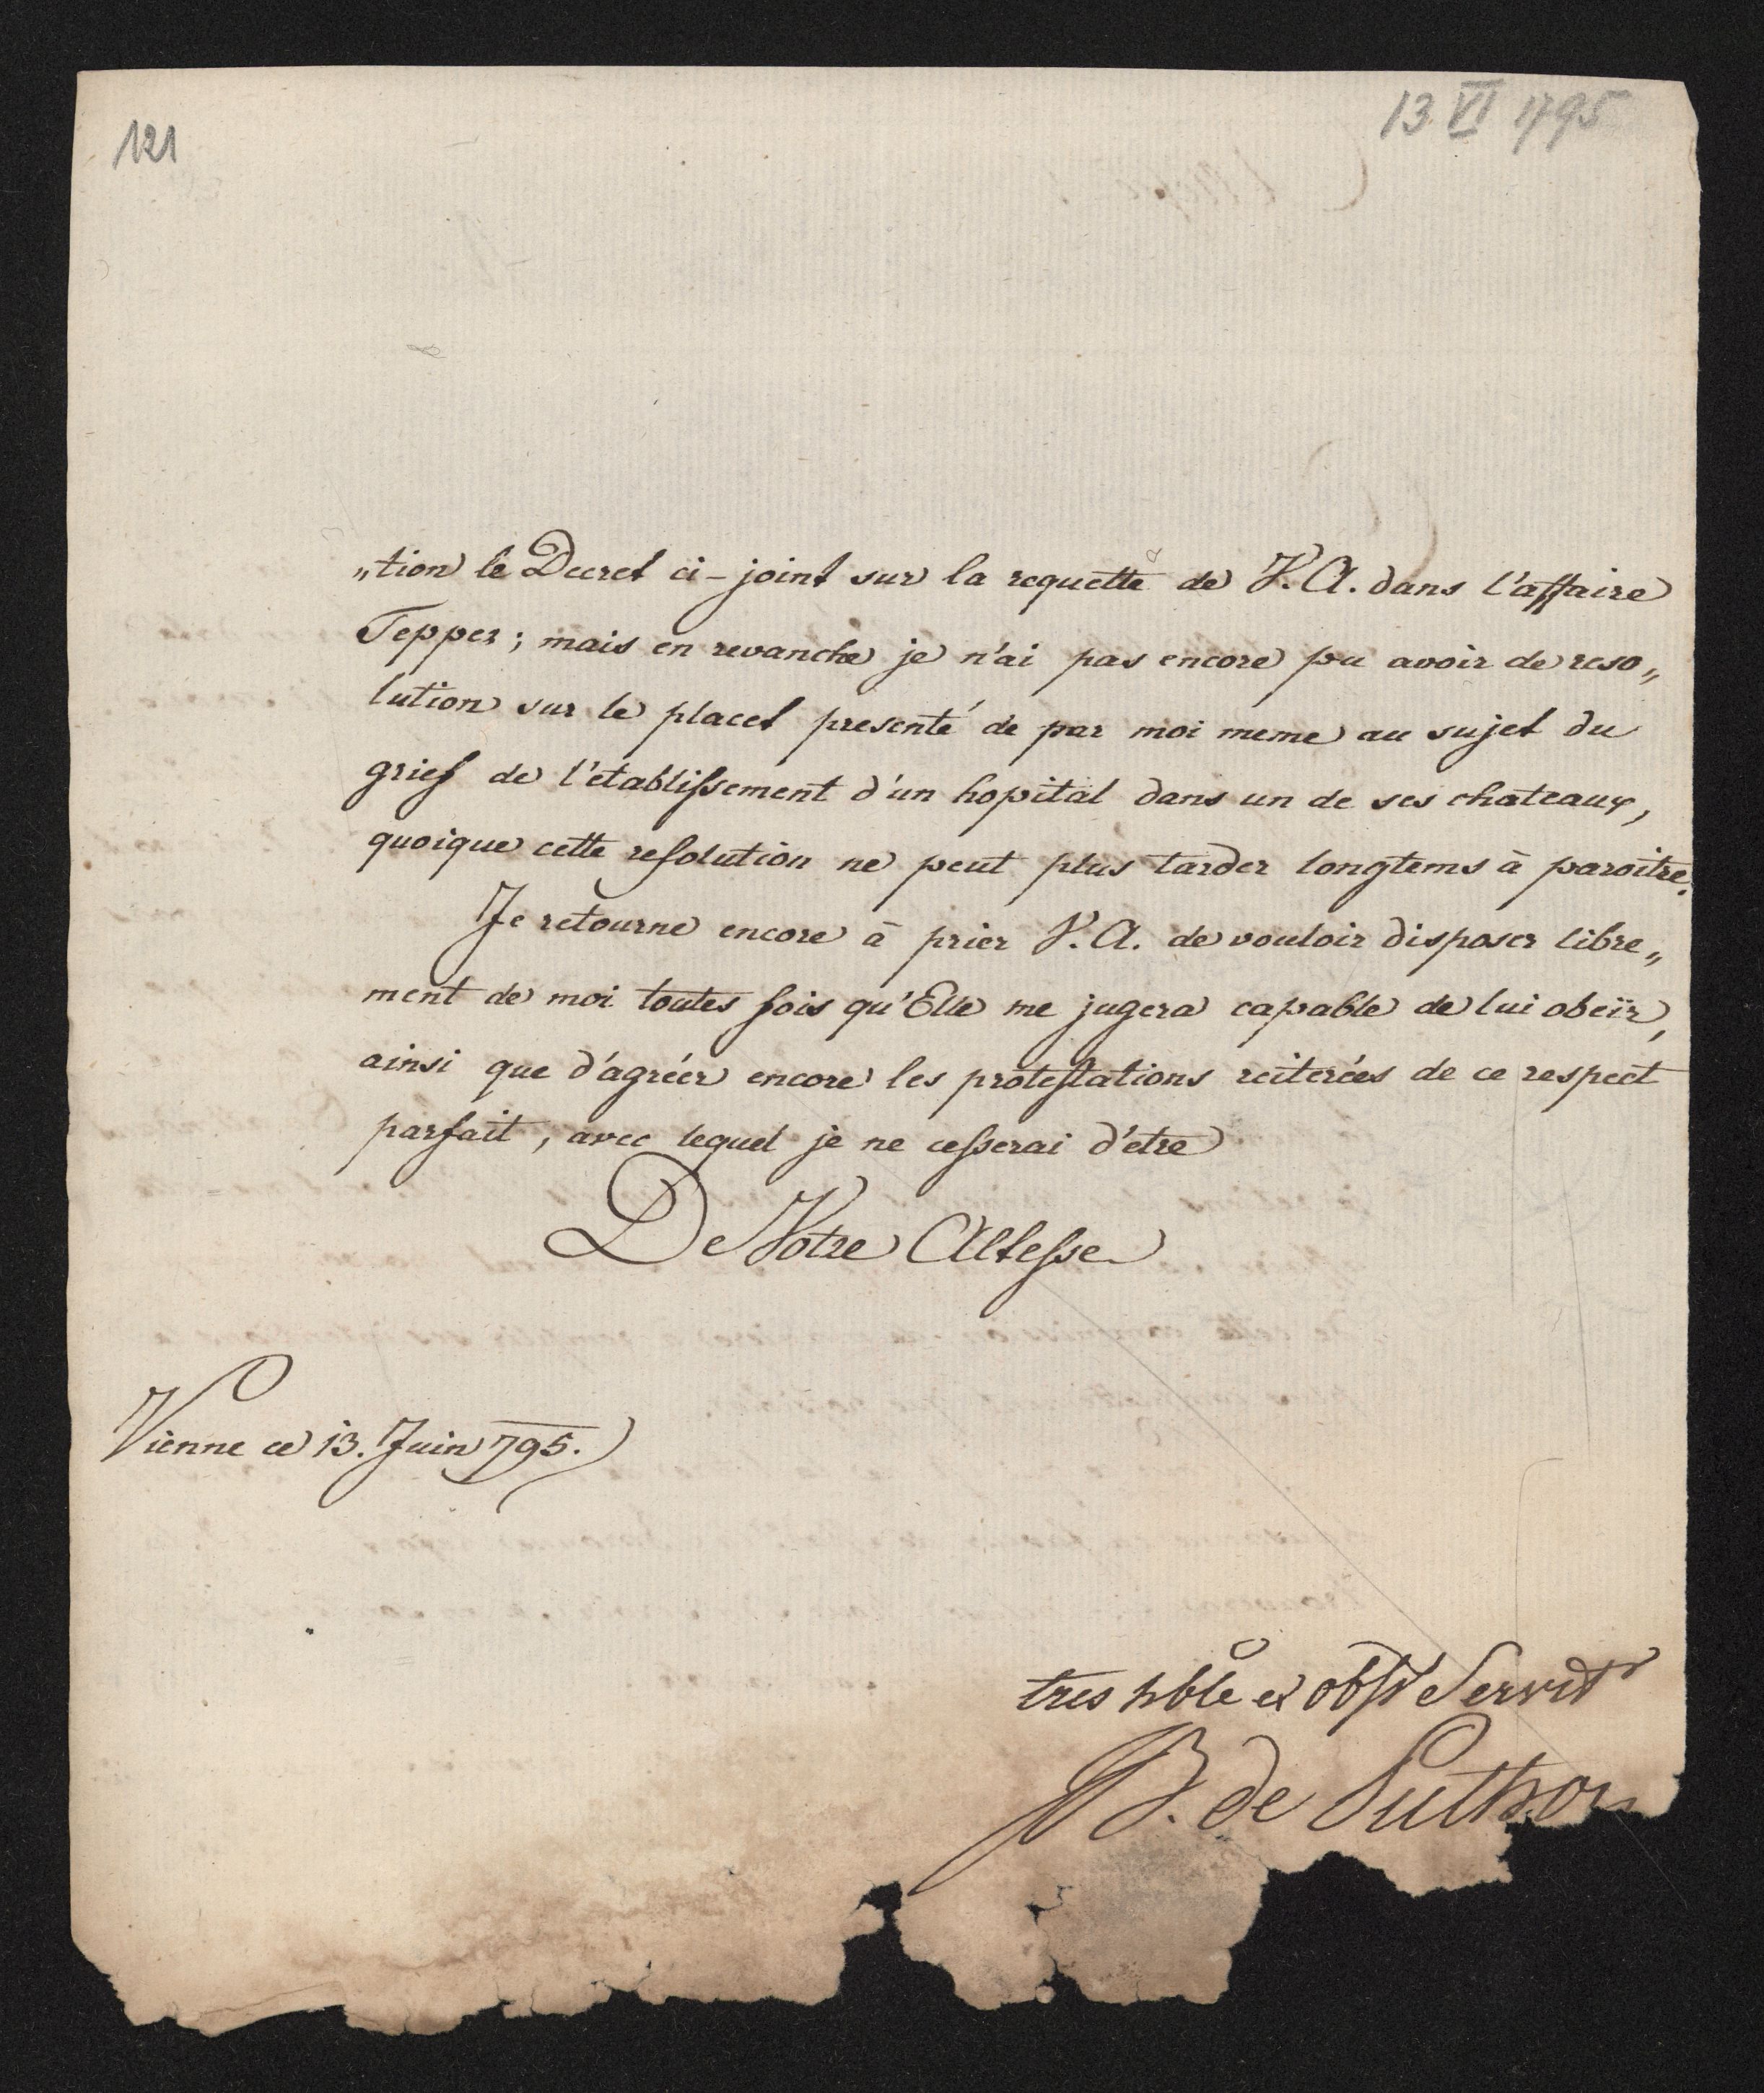 121
13 VI 1795
„tion le Decret ci-joint sur la requette de V. A. dans l'affaire
Tepper; mais en revanche je n'ai pas encore pu avoir de reso„
lution sur le placet presenté de par moi meme au sujet du
grief de l'etablissement d'un hopital dans un de ses chateaux,
quoique cette resolution ne peut plus tarder longtems à paroitre.
Je retourne encore à prier V. A. de vouloir disposer libre„
ment de moi toutes fois qu'Elle me jugera capable de lui obeïr,
ainsi que d'agréer encore les protestations reiterées de ce respect
parfait, avec lequel je ne cesserai d'etre
De Votre Altesse
Vienne ce 13. Juin 795.
tres hble et obst Servitr
B. de Puthon